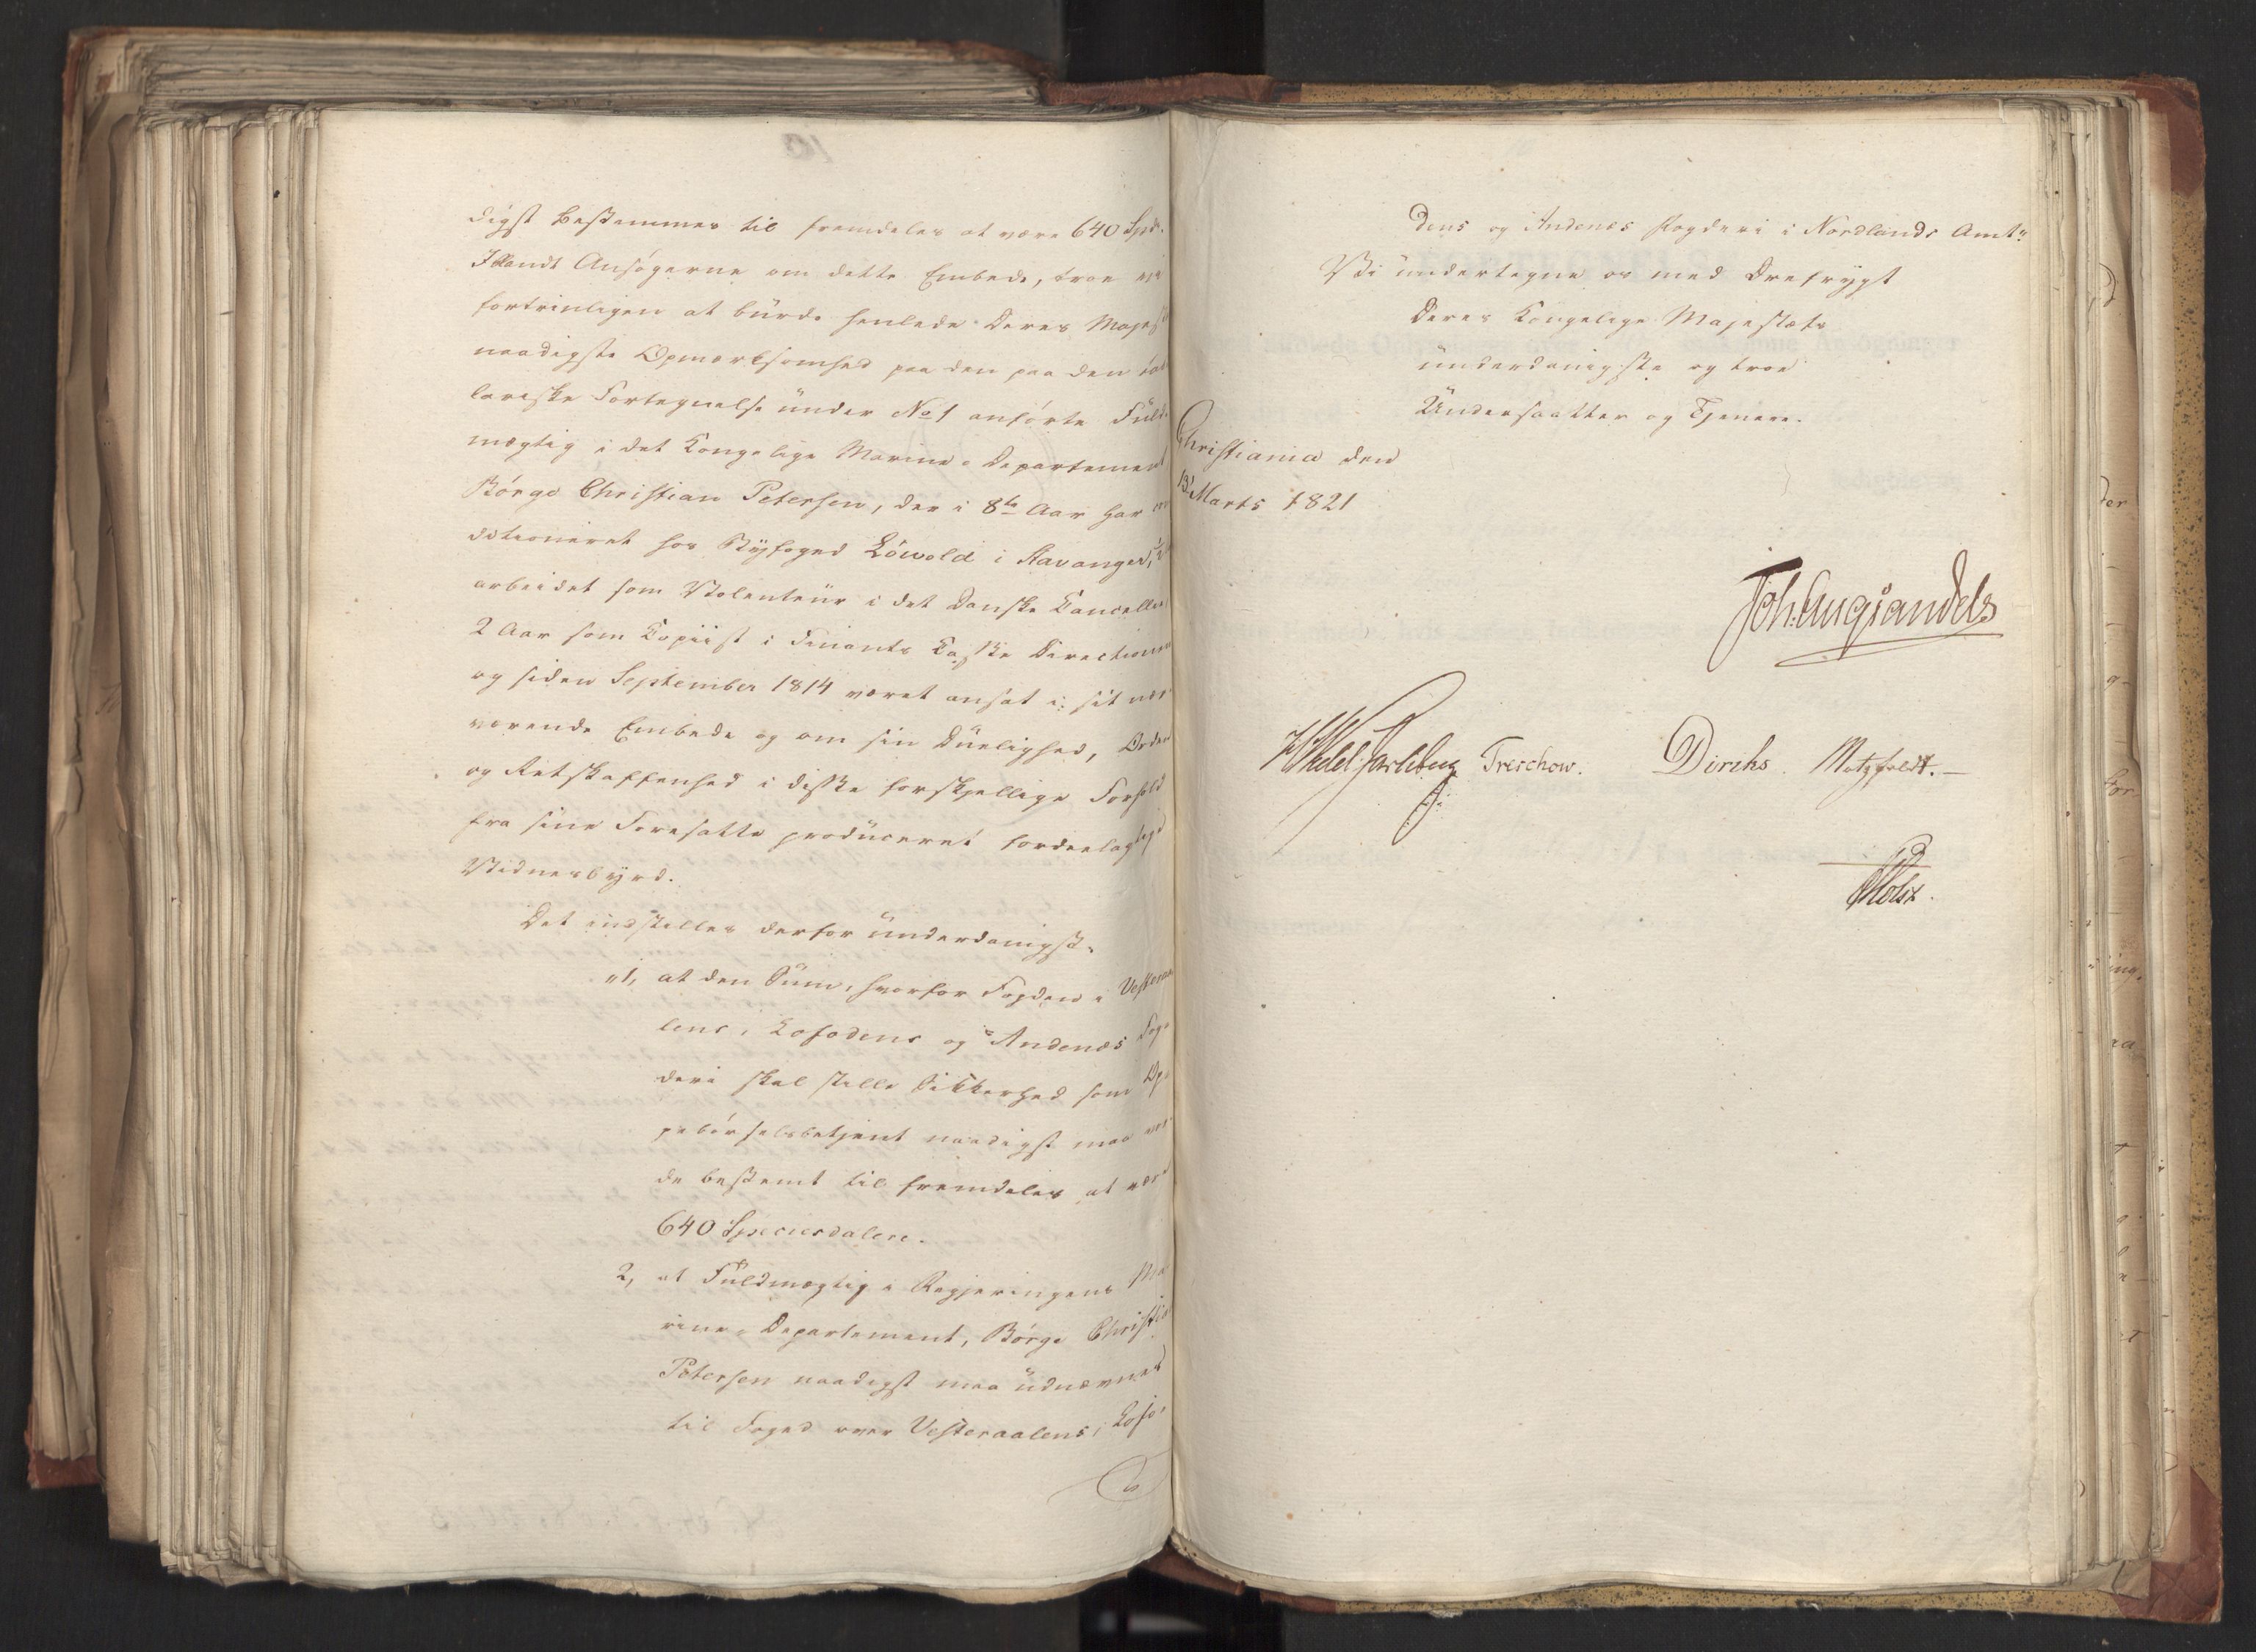 digst bestemmes til fremdeles at være 640 Spd.
Iblandt Ansøgerne om dette Embede, troe vi
fortrinligen at burde henlede Deres Majest
naadigste Opmærksomhed paa den paa den tabel
lariske Fortegnelse under No 1 anførte Fuld-
mægtig i det Kongelige Marine-Departement
Børge Christian Petersen, der i 8te Aar har con
ditioneret hos Byfoged Löwold i Stavanger, 1/2
arbeidet som Volenteur i det Danske Cancellie
2 Aar som Copiist i Finants Casse Directionen
og siden September 1814 været ansat i sit nær
værende Embede og om sin Duelighed, Orden
og Retskaffenhed i disse forskjellige Forhold
fra sine Foresatte produceret fordeelagtige
Vidnesbyrd.
Det indstilles derfor underdanigst:
"1, at den Sum, hvorfor Fogden i Vesteraa
lens, Lofodens og Andenæs Fog-
deri skal stille Sikkerhed som Op-
pebørselsbetjent naadigst maa vor
de bestemt til fremdeles at være
640 Speciesdalere.
2, at Fuldmægtig i Regjeringens Ma
rine-Departement, Børge Christia
Petersen naadigst maa udnævnes
til Foged over Vesteraalens, Lofo-
dens og Andenes Fogderi i Nordlands Amt."
Vi undertegne os med Ærefrygt
Deres Kongelige Majestæts
underdanigste og troe
Undersaatter og Tjenere.
Christiania den
13 Marts 1821
Joh: Aug Sandels
HWedel Jarlsberg Treschow. Diriks. Motzfeldt.
Holst.